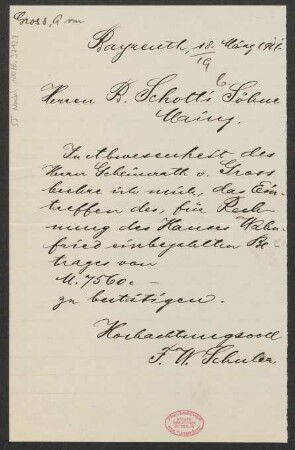 Gross, A von
Bayreuth, 18. März 19
19
Herren B. Schott's Söhne
Mainz.
In Abwesenheit des
Herrn Geheimrath v. Gross
beehre ich mich, das Ein-
treffen des, für Rech-
nung des Hauses Wahn-
fried einbezahlten Be-
trages von
M. 7560.-
zu bestätigen.
Hochachtungsvoll
F. W. Schuler